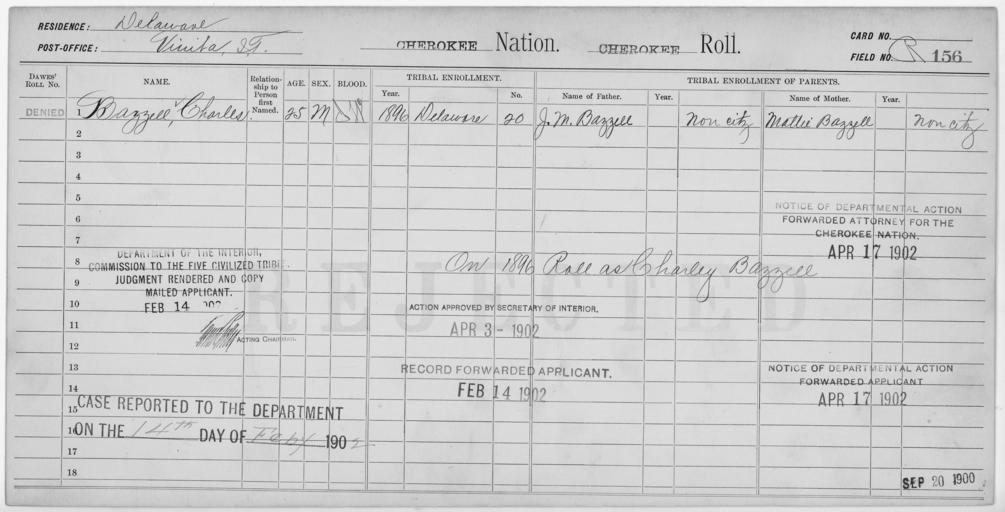 RESIDENCE: Delaware
POST-OFFICE: Vinita, I.T.
CHEROKEE Nation. CHEROKEE Roll.
CARD NO.
FIELD NO. R 156
DAWES' ROLL NO. NAME. Relationship to Person first Named. AGE. SEX. BLOOD. TRIBAL ENROLLMENT. Year. No. TRIBAL ENROLLMENT OF PARENTS. Name of Father. Year. Name of Mother. Year.
DENIED 1 Bazzell, Charles 25 M 1896 Delaware 20 J. M. Bazzell Non citz Mattie Bazzell Non citz
2
3
4
5
6
7
8
9
10
11
12
13
14
15
16
17
18
NOTICE OF DEPARTMENTAL ACTION
FORWARDED ATTORNEY FOR THE
CHEROKEE NATION.
APR 17 1902
On 1896 Roll as Charley Bazzell
DEPARTMENT OF THE INTERIOR,
COMMISSION TO THE FIVE CIVILIZED TRIBE
JUDGMENT RENDERED AND COPY
MAILED APPLICANT.
FEB 14
ACTING CHAIRMAN.
REJECTED
ACTION APPROVED BY SECRETARY OF INTERIOR.
APR 3 - 1902
RECORD FORWARDED APPLICANT.
FEB 14 1902
NOTICE OF DEPARTMENTAL ACTION
FORWARDED APPLICANT
APR 17 1902
CASE REPORTED TO THE DEPARTMENT
ON THE 14th DAY OF Feby 1902
SEP 20 1900